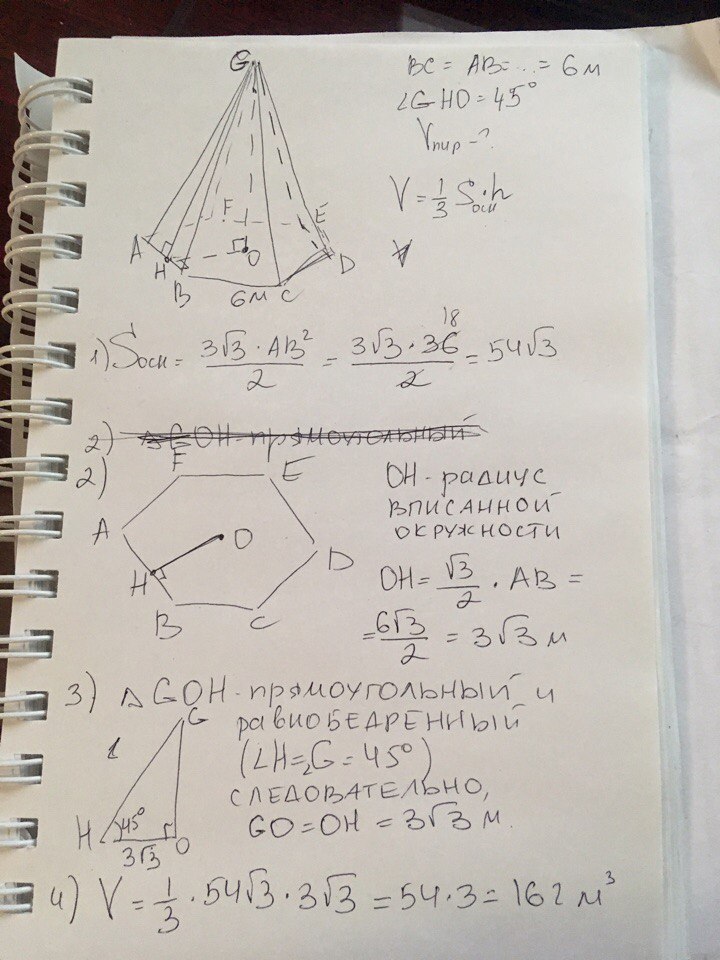 G
BC = AB = ... = 6 м
∠GHO = 45°
Vпир - ?
V = 1/3 Sосн · h
F
E
A
H
O
D
B
6м
C
1) Sосн = 3√3 · AB² / 2 = 3√3 · 36 / 2 = 54√3
18
2) △GOH - прямоугольный
2)
F
E
A
O
D
H
B
C
OH - радиус
вписанной
окружности
OH = √3/2 · AB =
= 6√3/2 = 3√3 м
3) △GOH - прямоугольный и
равнобедренный
(∠H = ∠G = 45°)
следовательно,
GO = OH = 3√3 м.
G
H
45°
O
3√3
4) V = 1/3 · 54√3 · 3√3 = 54 · 3 = 162 м³